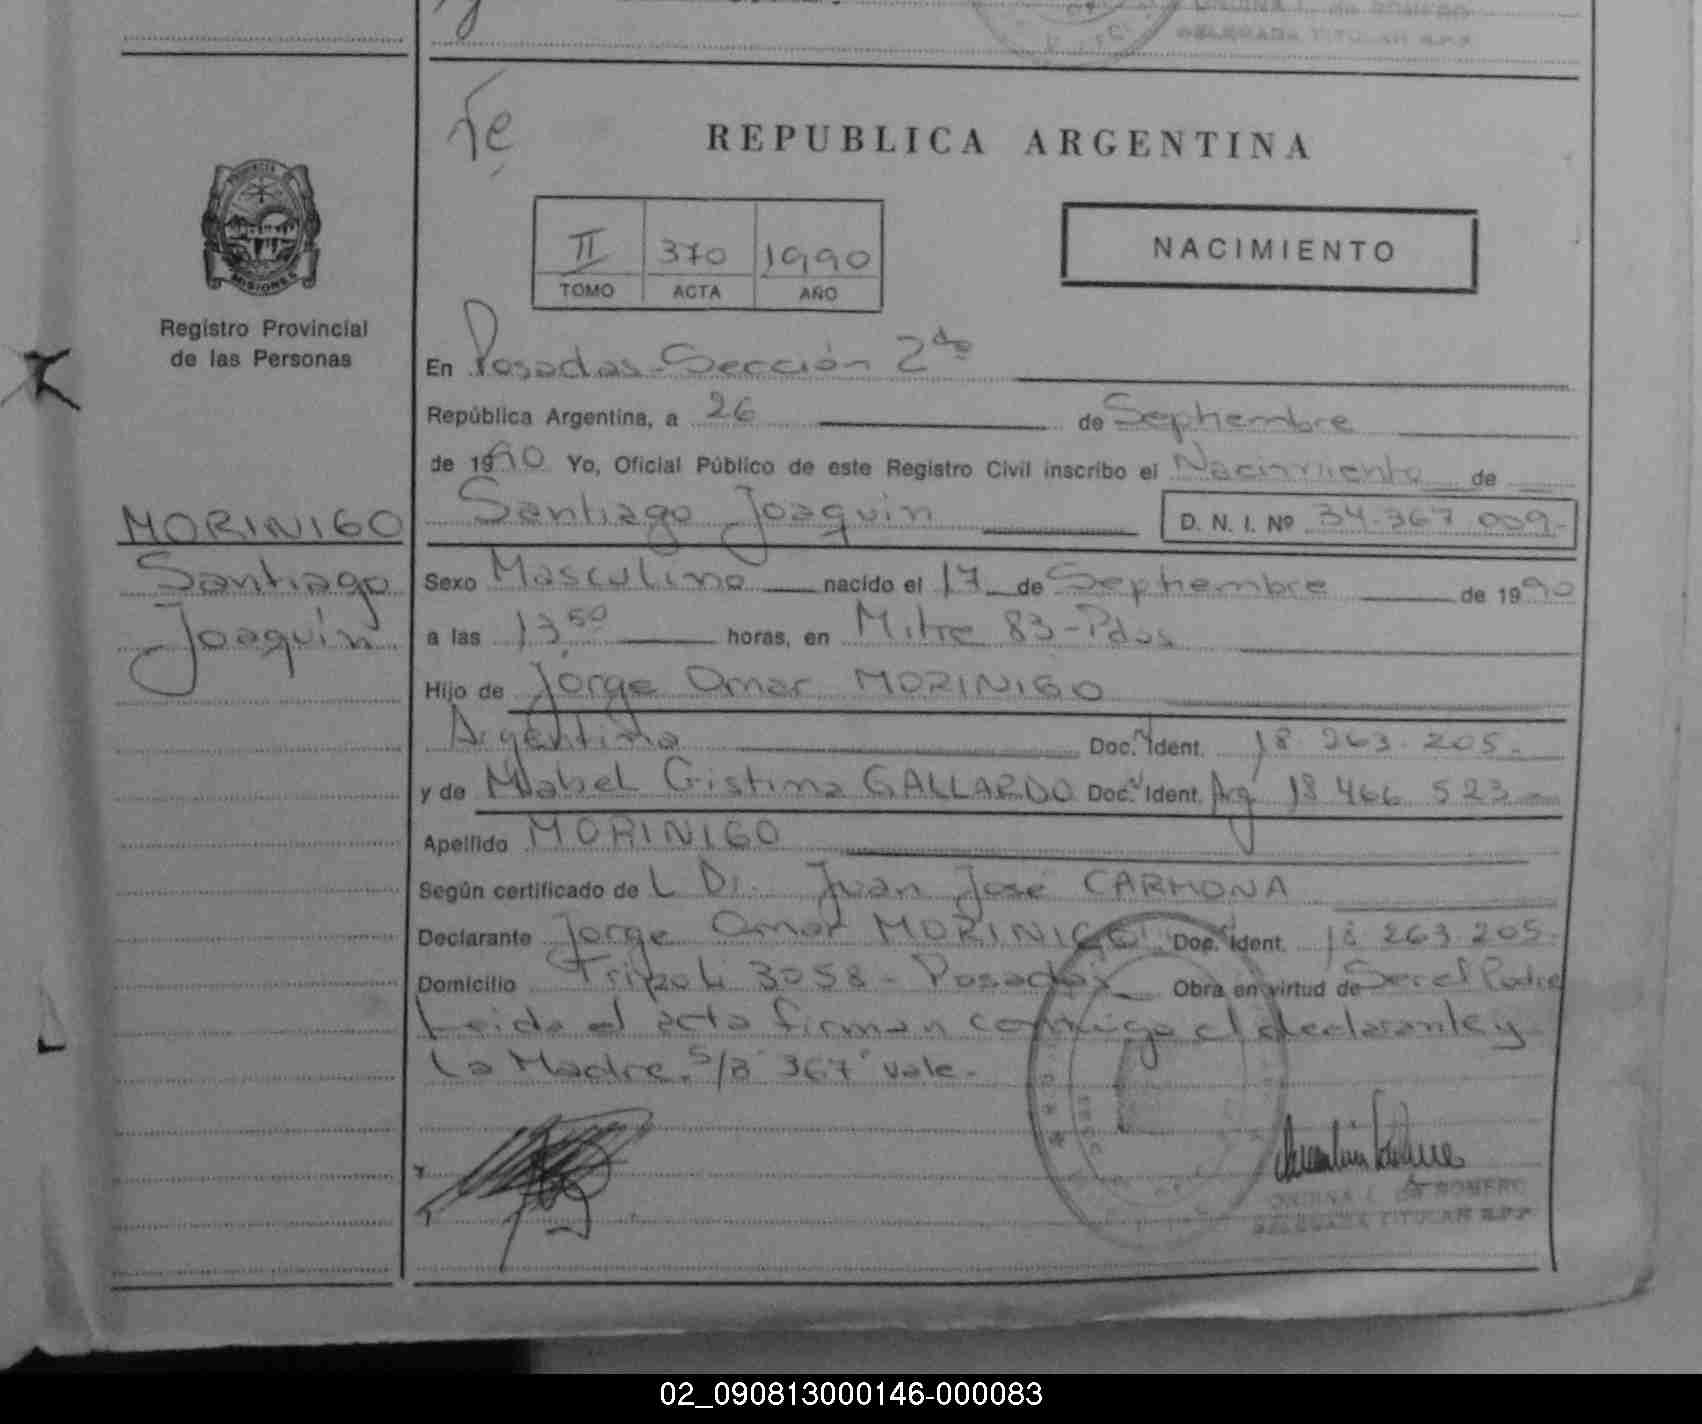 ONDINA L. DE ROMERO
DELEGADA TITULAR R.P.P.
Fe
REPUBLICA ARGENTINA
PROVINCIA
MISIONES
Registro Provincial
de las Personas
II 370 1990
TOMO ACTA AÑO
NACIMIENTO
En Posadas-Sección 2da
República Argentina, a 26 de Septiembre
de 1990 Yo, Oficial Público de este Registro Civil inscribo el Nacimiento de
MORINIGO
Santiago
Joaquín
Santiago Joaquín D. N. I. Nº 34.367.009-
Sexo Masculino nacido el 17 de Septiembre de 1990
a las 13,50 horas, en Mitre 83-Pdas
Hijo de Jorge Omar MORINIGO
Argentino Doc. Ident. 18 263.205-
y de Mabel Cristina GALLARDO Doc. Ident. Arg 18 466 523-
Apellido MORINIGO
Según certificado de L Dr. Juan José CARMONA
Declarante Jorge Omar MORINIGO Doc. Ident. 18 263 205-
Domicilio Tripoli 3058 - Posadas Obra en virtud de Ser el Padre
Leida el acta firman conmigo el declarante y
la Madre. S/R "367" vale-
ONDINA L. DE ROMERO
DELEGADA TITULAR R.P.P.
02_090813000146-000083